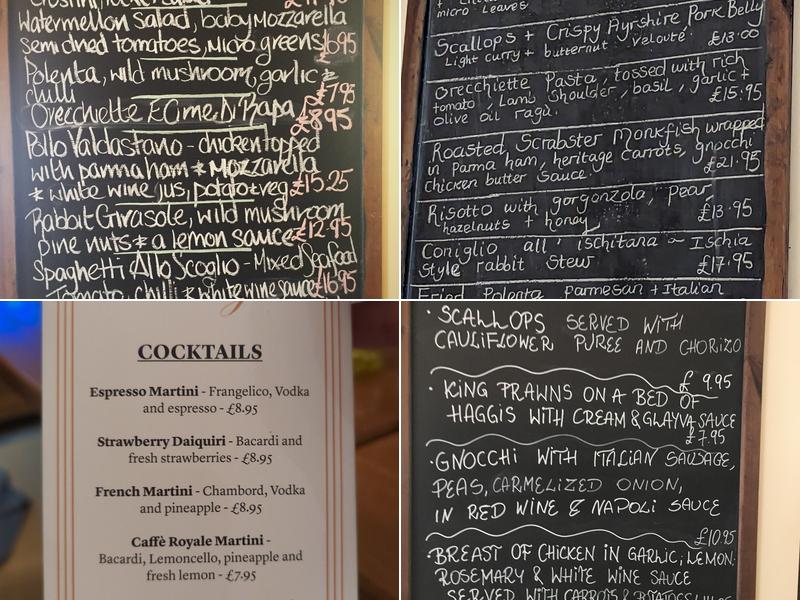 Watermellon Salad, baby Mozzarella
semi dried tomatoes, Micro greens £6.95
Polenta, wild mushroom, garlic &
chilli £7.95
Orecchiette E Cime Di Rapa £8.95
Pollo Valdastano - chicken topped
with parma ham & Mozzarella
& white wine jus, potato & veg £15.25
Rabbit Girasole, wild mushroom
pine nuts & a lemon sauce £12.95
Spaghetti Allo Scoglio - Mixed Seafood
Tomato, chilli & white wine sauce £16.95
micro leaves
Scallops + Crispy Ayrshire Pork Belly
Light curry + butternut veloute £13.00
Orecchiette Pasta, tossed with rich
tomato, Lamb Shoulder, basil, garlic +
olive oil ragu. £15.95
Roasted, Scrabster Monkfish wrapped
in Parma ham, heritage carrots, gnocchi
chicken butter sauce. £21.95
Risotto with gorgonzola, Pear,
hazelnuts + honey £13.95
Coniglio all' ischitana ~ Ischia
Style rabbit stew £17.95
Fried Polenta Parmesan + Italian
COCKTAILS
Espresso Martini - Frangelico, Vodka
and espresso - £8.95
Strawberry Daiquiri - Bacardi and
fresh strawberries - £8.95
French Martini - Chambord, Vodka
and pineapple - £8.95
Caffè Royale Martini -
Bacardi, Lemoncello, pineapple and
fresh lemon - £7.95
• SCALLOPS SERVED WITH
CAULIFLOWER PUREE AND CHORIZO
£9.95
• KING PRAWNS ON A BED OF
HAGGIS WITH CREAM & GLAYVA SAUCE
£7.95
• GNOCCHI WITH ITALIAN SAUSAGE,
PEAS, CARMELIZED ONION,
IN RED WINE & NAPOLI SAUCE
£10.95
• BREAST OF CHICKEN IN GARLIC, LEMON,
ROSEMARY & WHITE WINE SAUCE
SERVED WITH CARROTS & POTATOES